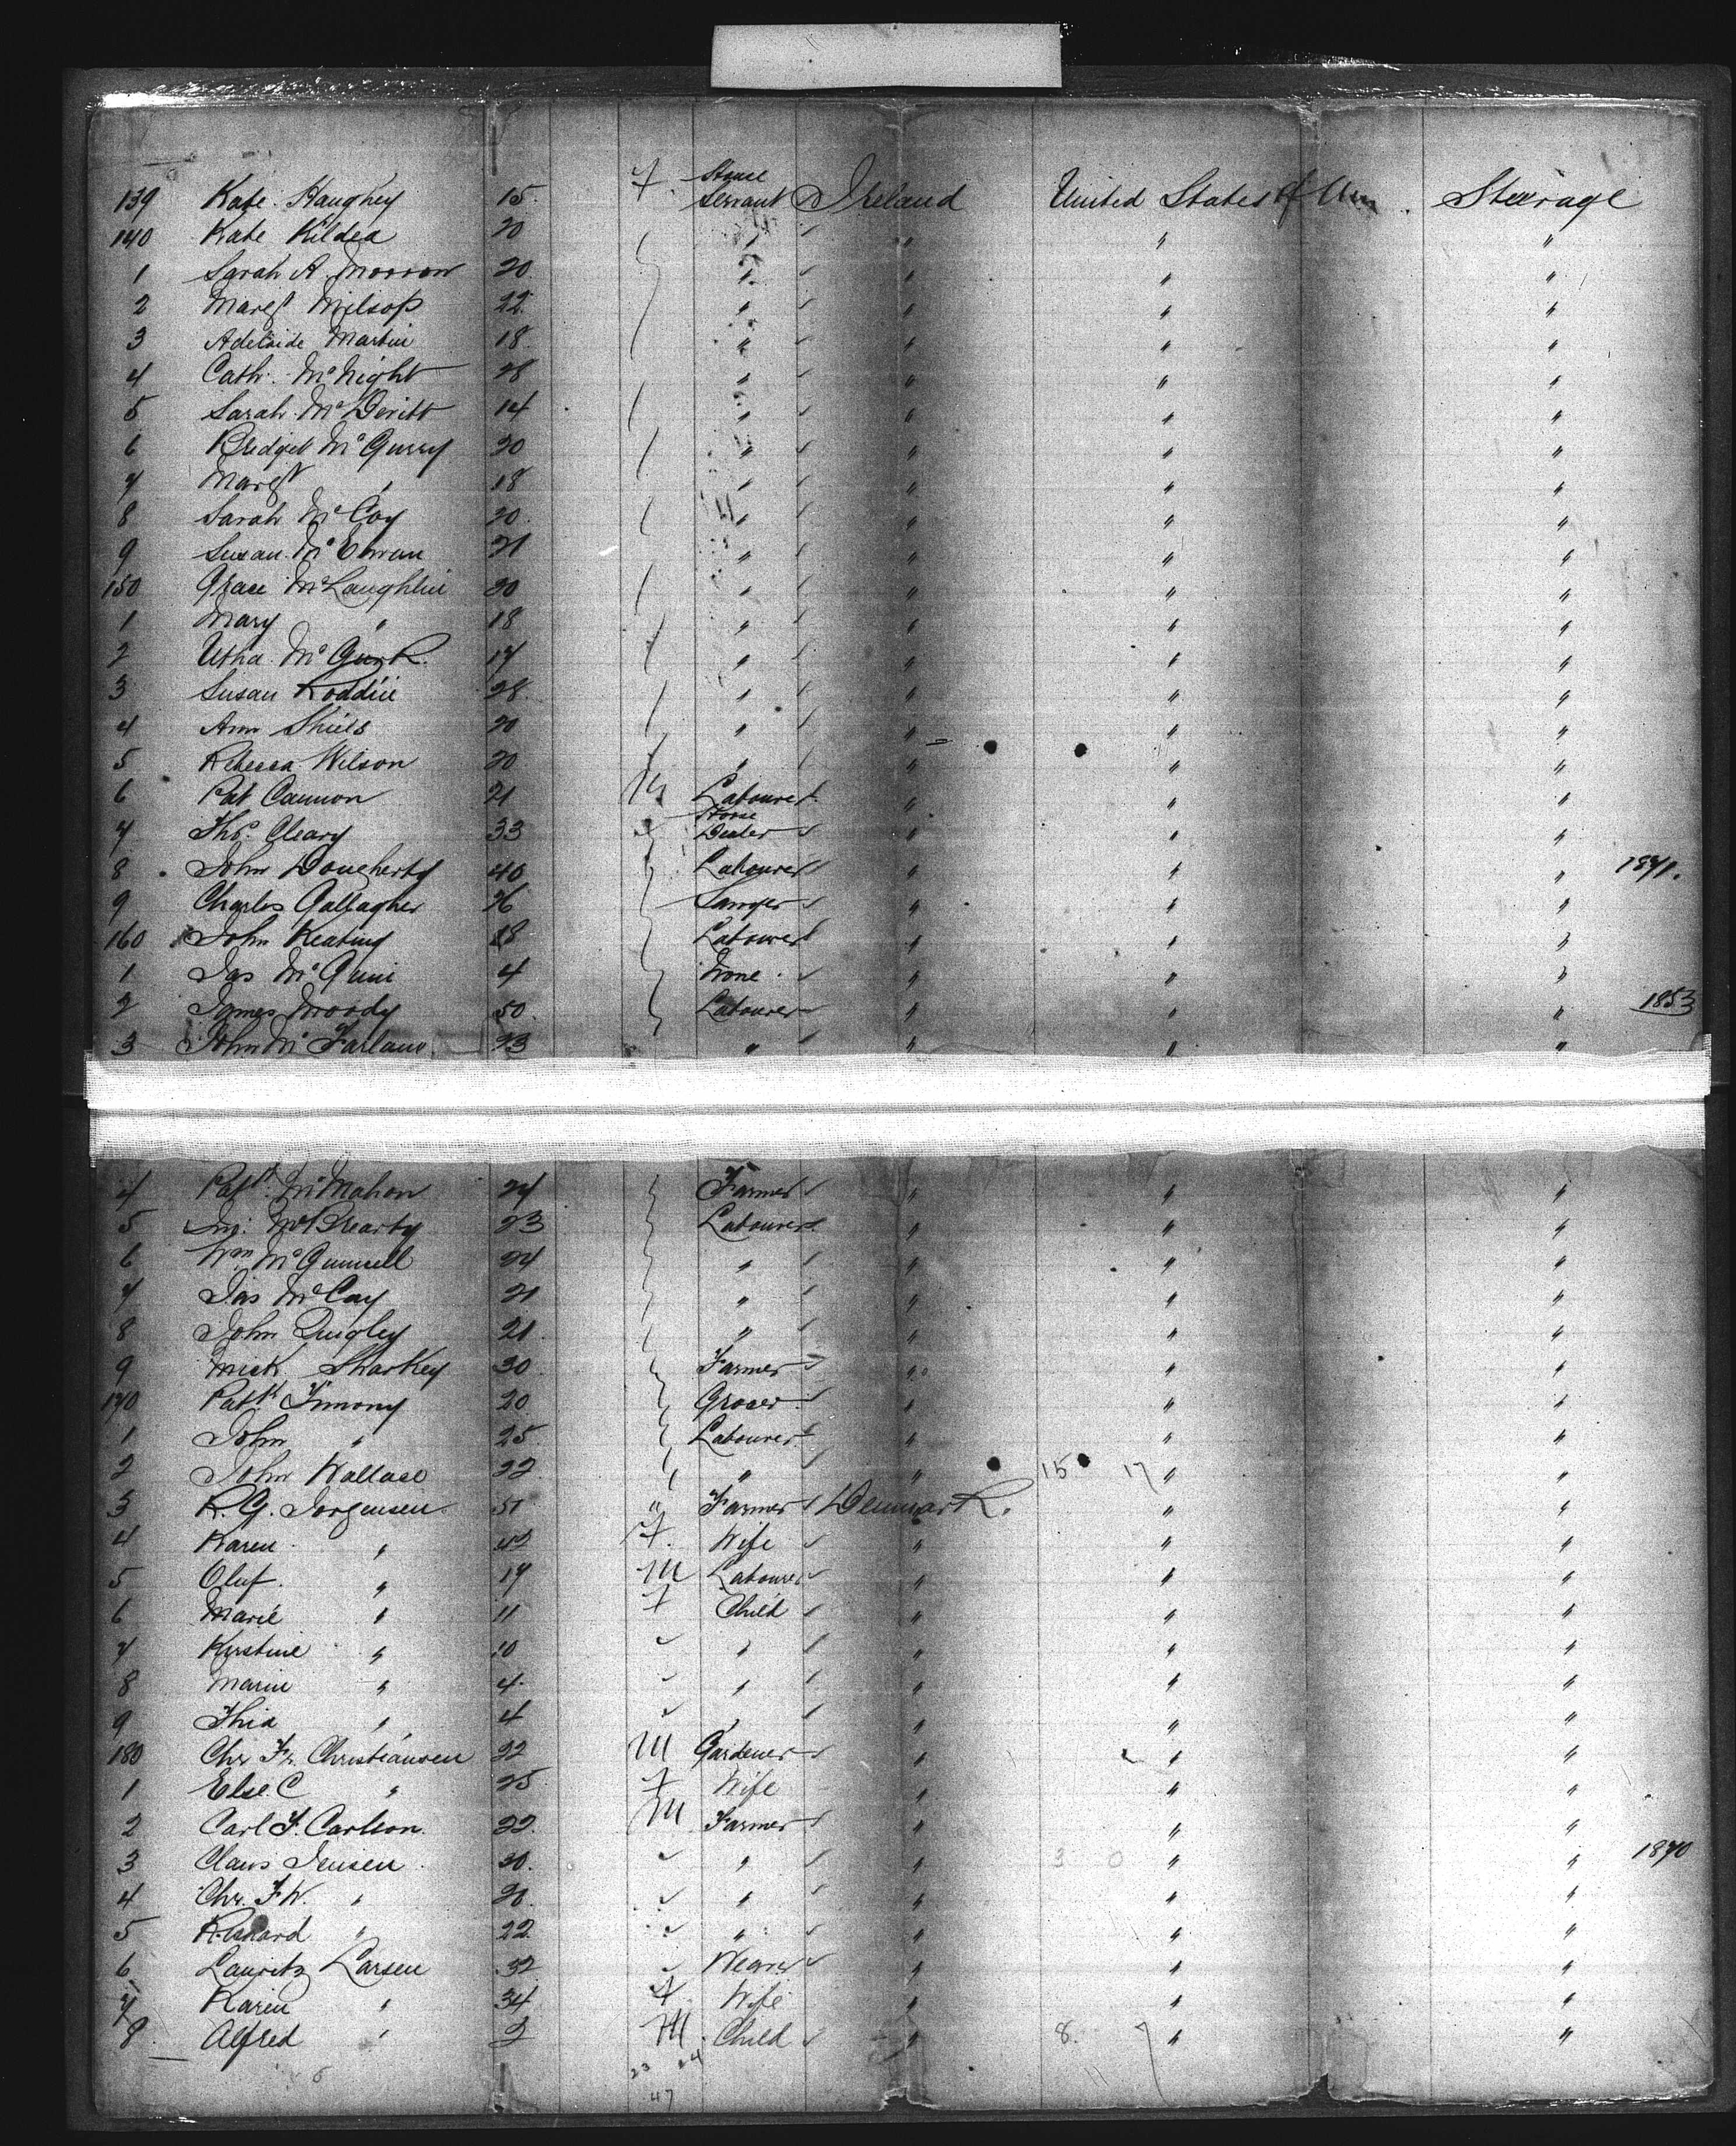 House
139 Kate Haughey 15 f Servant Ireland United States of Am. Steerage
140 Kate Kildea 20 " " " "
1 Sarah A. Morrow 20 " " " "
2 Margt Milsop 22 " " " "
3 Adelaide Martin 18 " " " "
4 Cath. McNight 28 " " " "
5 Sarah McDevitt 14 " " " "
6 Bridget McGurry 20 " " " "
7 Margt " 18 " " " "
8 Sarah McCoy 20 " " " "
9 Susan 21 " " " "
150 Grace McLaughlin 20 " " " "
1 Mary " 18 " " " "
2 McGurk 17 " " " "
3 Susan Roddin 28 " " " "
4 Ann Shiels 20 " " " "
5 Rebecca Wilson 20 " " " "
6 Pat Cannon 21 M Labourer " " "
Horse
7 Thos. Cleary 33 Dealer " " "
8 John Dougherty 40 Labourer " " " 1871.
9 Charles Gallagher 26 Sawyer " " "
160 John Keating 18 Labourer " " "
1 Jas 4 None " " "
2 James Moody 50 Labourer " " " 1853
3 John McFarland 23 " " " "
4 Patk. McMahon 24 Farmer " " "
5 Jno. McBrearty 23 Labourer " " "
6 Wm McGunnell 24 " " " "
7 Jas McCay 21 " " " "
8 John Quigley 21 " " " "
9 Mick Sharkey 30 Farmer " " "
170 Patk Timony 20 Grocer " " "
1 John " 25 Labourer " " "
2 John Wallace 22 " " 15 17 " "
3 R. G. Jorgensen 51 " Farmer Denmark. " "
4 Karen " 42 f Wife " " "
5 Oluf " 17 M Labourer " " "
6 Marie " 11 f Child " " "
7 Kirstine " 10 " " " "
8 Marie " 4 " " " "
9 Thia " 4 " " " "
180 Chr Fr. Christiansen 22 M Gardener " " "
1 Else C " 25 f Wife " " "
2 Carl F. Carlson 22 M Farmer " " "
3 Claus Jensen 30 " " 3 0 " " 1870
4 Chr. F. W. " 20 " " " "
5 Rikard " 22 " " " "
6 Lauritz Larsen 32 Weaver " " "
7 Karen " 34 f Wife " " "
8 Alfred " 2 M Child " 8 7 " "
6 23 24 11
47